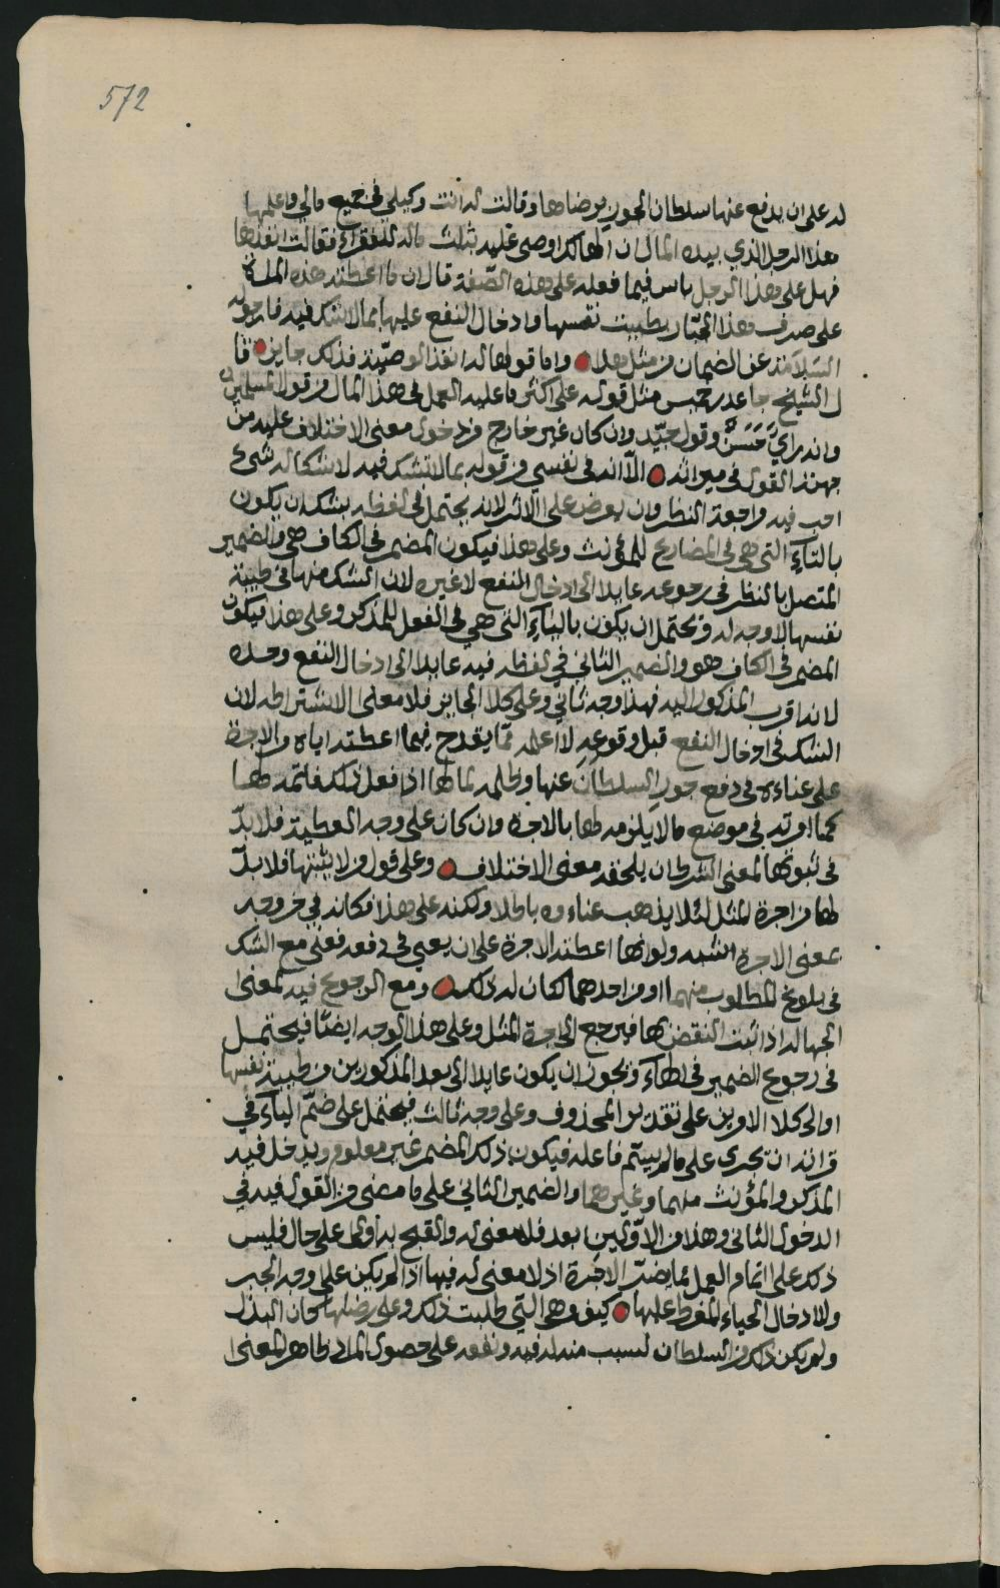 572
له على ان يدفع عنها سلطان الجور برضاها وقالت له انت وكيلي في جميع مالي واعلمها
هذا الرجل الذي بيده المال ان الهالك اوصى عليه بثلث ماله للفقراء فقالت انفذها
فهل على هذا الرجل باس فيما فعله على هذه الصفة قال ان ما اعطته هذه المراة
على صرف هذا الجبار بطيبت نفسها وادخال النفع عليها مما لا شك فيه فارجو له
السلامة عن الضمان من مثل هذا واما قولها له انفذ الوصية فذلك جايز قا
ل الشيخ جاعد بن خميس مثل قوله على اكثر ما عليه العمل في هذا المال من قول المسلمين
وانه راي حسن وقول جيد وان كان غير خارج من دخول معنى الاختلاف عليه من
جهة القول في ميراثه الا انه في نفسي من قوله بما لا تشك فيه لاشكاله شيء
احب فيه مراجعة النظر وان يعرض على الاثر لانه يحتمل في لفظه بتشك ان يكون
بالتاء التي هي في المضارع للمؤنث وعلى هذا فيكون المضمر في الكاف هي والضمير
المتصل بالنظر في رجوعه عايدا الى ادخال النفع لا غيره لان الشك منها في طيبة
نفسها لا وجه له ويحتمل ان يكون بالياء التي هي في الفعل للمذكر وعلى هذا فيكون
المضمر في الكاف هو والضمير الثاني في لفظه فيه عايدا الى ادخال النفع وحده
لانه اقرب المذكور اليه فهذا وجه ثاني وعلى كلا الحالين فلا معنى لاشتراطه لان
الشك في ادخال النفع قبل وقوعه لا اعلمه مما يقدح فيما اعطته اياه من الاجرة
على عناءه في دفع جور السلطان عنها وظلمه لما لها اذا فعل ذلك فاتمه لها
كما امرته في موضع ما لا يلزمه لها بالاجرة وان كان على وجه العطية فلا بد
في ثبوتها لمعنى الشرط ان يلحقه معنى الاختلاف وعلى قول من لا يثبتها فلا بد
لها من اجرة المثل لئلا يذهب عناءوه باطلا ولكنه على هذا فكانه في خروجه
بمعنى الاجرة اشبه ولو انها اعطته الاجرة على ان يعني في دفعه فعنى مع الشك
في بلوغ المطلوب منهما او من احدهما لكان له ذلك ومع الرجوع فيه لمعنى
الجهالة اذا اثبت النقض بها فيرجع الى اجرة المثل وعلى هذا الوجه ايضا فيحتمل
في رجوع الضمير في الهاء ويجوز ان يكون عايدا الى بعد المذكورين من طيبة نفسها
او الى كلا الامرين على تقدير المحذوف وعلى وجه ثالث فيحتمل على ضم الياء في
قرانه ان تجرى على ما لم يسم فاعله فيكون ذلك المضمر غير معلوم ويدخل فيه
المذكر والمؤنث منهما وغيرهما والضمير الثاني على ما مضى من القول فيه في
الدخول الثاني وهذا من الاولين ابعد فلا معنى له والقبح به اولى على حال فليس
ذلك على اتمام العمل بما يضر الاجرة اذ لا معنى له فيها اذا لم يكن على وجه الجبر
ولا ادخال الحياء المفرط عليها كيف وهي التي طلبت ذلك وعلى رضاها كان البذل
ولم يكن ذلك من السلطان لسبب منه له فيه ونفعه على حصول المراد ظاهر المعنى